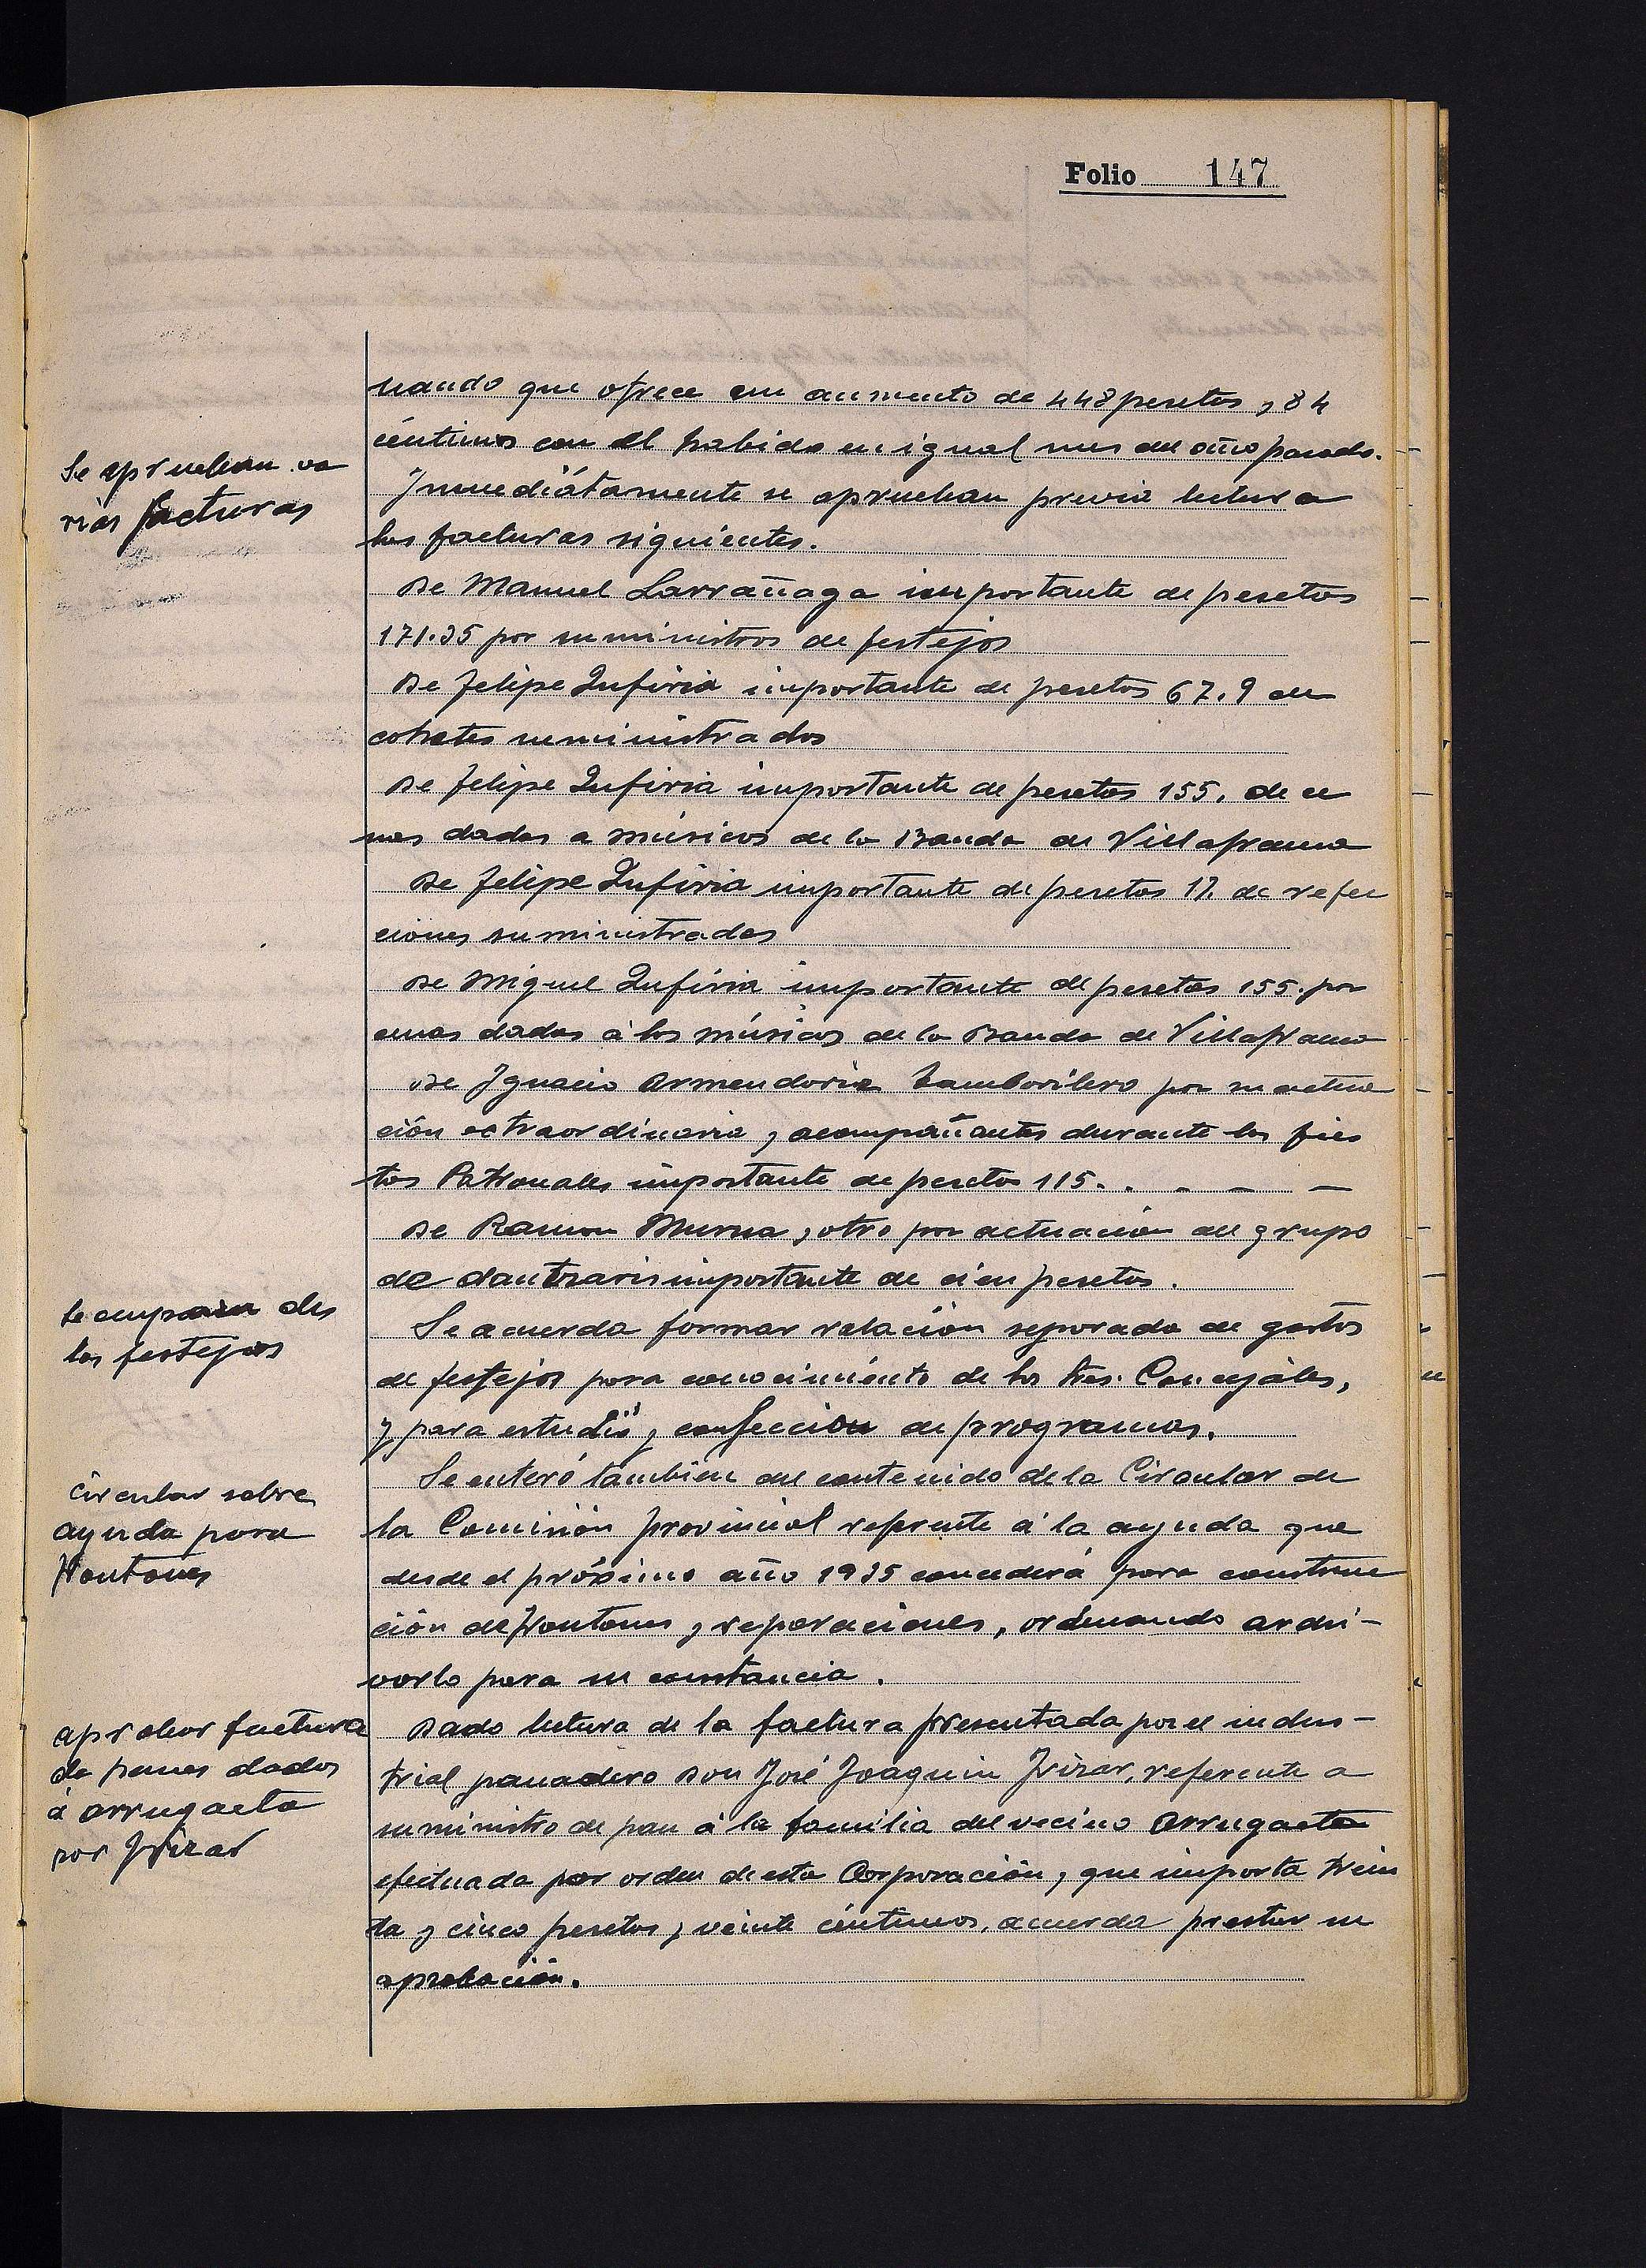 Folio 147
nando que ofrece un aumento de 448 pesetas y 84
céntimos con el habido en igual mes del año pasado.
Se aprueban va
rias facturas
Inmediátamente se aprueban previa lectura
las facturas siguientes.
De Manuel Larrañaga importante de pesetas
171.35 por suministros de festejos
De Felipe Zufiria importante de pesetas 67.9 de
cohetes suministrados
De Felipe Zufiria importante de pesetas 155. de ce
nas dadas a músicos de la Banda de Villafranca
De Felipe Zufiria importante de pesetas 17. de refec
ciones suministradas
De Miguel Zufiria importante de pesetas 155. por
cenas dadas á los músicos de la Banda de Villafranca
De Ignacio Armendariz tamborilero por su actua
ción extraordinaria y acompañantes durante las fies
tas Patronales importante de pesetas 115. . - - -
De Ramon Murua y otro por actuación del grupo
de dantzaris importante de cien pesetas.
los festejos
Se acuerda formar relación separada de gastos
de festejos para conocimiento de los Sres. Concejáles,
y para estudio y confeccion de programas.
circular sobre
ayuda para
frontones
Se enteró tambien del contenido de la Circular de
la Comisión provincial referente á la ayuda que
desde el próximo año 1935 concederá para construc
ción de frontones y reparaciones, ordenando archi-
varlo para su constancia.
aprobar factura
de panes dados
á Arrugaeta
por Irizar
Dado lectura de la factura presentada por el indus-
trial panadero Don José Joaquin Irizar, referente a
suministro de pan á la familia del vecino Arrugaeta
efectuada por orden de esta Corporación, que importa trein
ta y cinco pesetas y veinte céntimos, acuerda prestar su
aprobación.